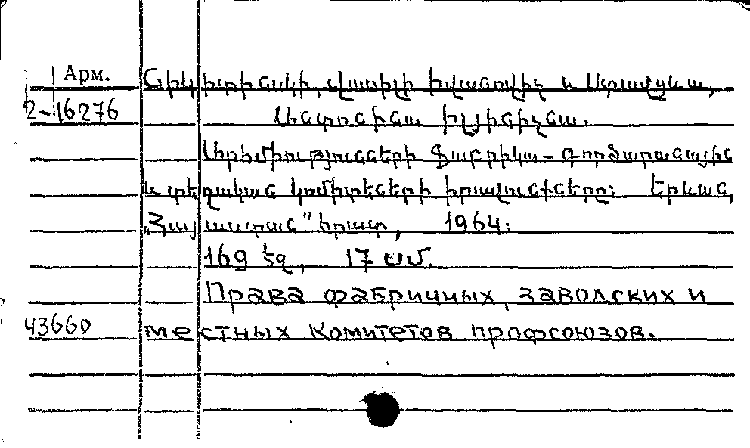 Арм.
2-16276
Նիկիտինսկի, Վասիլի Իվանովիչ և Ստամկևա,
Անտոնինա Իլյինիչնա.
Արհմիությունների ֆաբրիկա-գործարանային
և տեղական կոմիտեների իրավունքները: Երևան,
„Հայաստան" հրատ, 1964:
169 էջ, 17 սմ.
Права фабричных, заводских и
43660 местных комитетов профсоюзов.